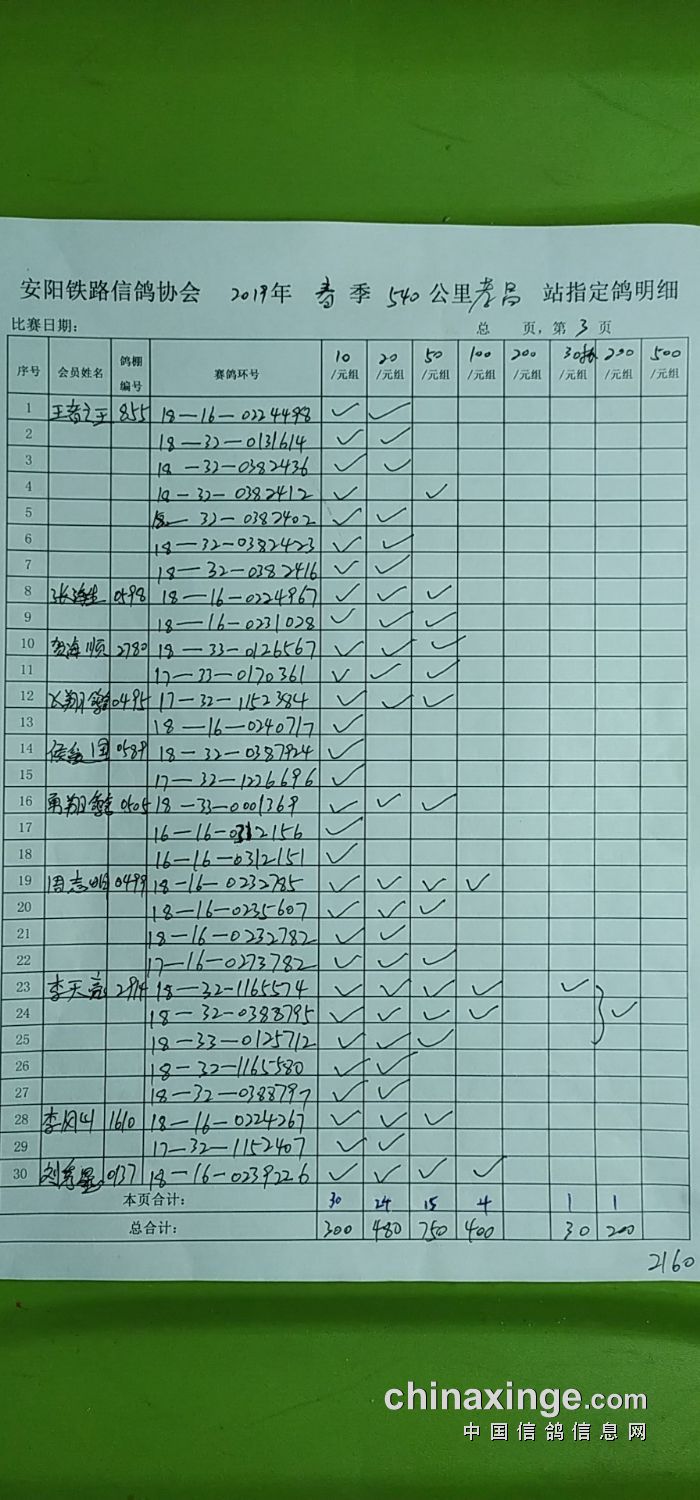 安阳铁路信鸽协会 2019年 春 季 540 公里孝昌 站指定鸽明细
比赛日期: 总 页, 第 3 页
序号 会员姓名 鸽棚编号 赛鸽环号 10/元组 20/元组 50/元组 100/元组 200/元组 30 /元组 200/元组 500/元组
1 王者之王 855 18-16-0224498 ✓ ✓
2 18-32-0131614 ✓ ✓
3 18-32-0382436 ✓ ✓
4 18-32-0382412 ✓ ✓
5 18-32-0382402 ✓ ✓
6 18-32-0382423 ✓ ✓
7 18-32-0382416 ✓ ✓
8 张海生 0598 18-16-0224967 ✓ ✓ ✓
9 18-16-0231028 ✓ ✓ ✓
10 贺海顺 2780 18-33-0126567 ✓ ✓ ✓
11 17-33-0170361 ✓ ✓ ✓
12 飞翔鸽舍 0495 17-32-1152384 ✓ ✓ ✓
13 18-16-0240717 ✓
14 国 0589 18-32-0387924 ✓
15 17-32-1226696 ✓
16 勇翔鸽舍 0505 18-33-0001269 ✓ ✓ ✓
17 16-16-0312156 ✓
18 16-16-0312151 ✓
19 周志明 0499 18-16-0232785 ✓ ✓ ✓ ✓
20 18-16-0235607 ✓ ✓ ✓
21 18-16-0232782 ✓ ✓
22 17-16-0273782 ✓ ✓ ✓
23 李天亮 2914 18-32-1165574 ✓ ✓ ✓ ✓ ✓
24 18-32-0388795 ✓ ✓ ✓ ✓ ✓
25 18-33-0125712 ✓ ✓ ✓
26 18-32-1165580 ✓ ✓
27 18-32-0388797 ✓ ✓
28 李风山 1610 18-16-0224267 ✓ ✓ ✓
29 17-32-1152407 ✓ ✓
30 刘 0137 18-16-0239226 ✓ ✓ ✓ ✓
本页合计: 30 24 15 4 1 1
总合计: 300 480 750 400 30 200
2160
chinaxinge.com
中国信鸽信息网